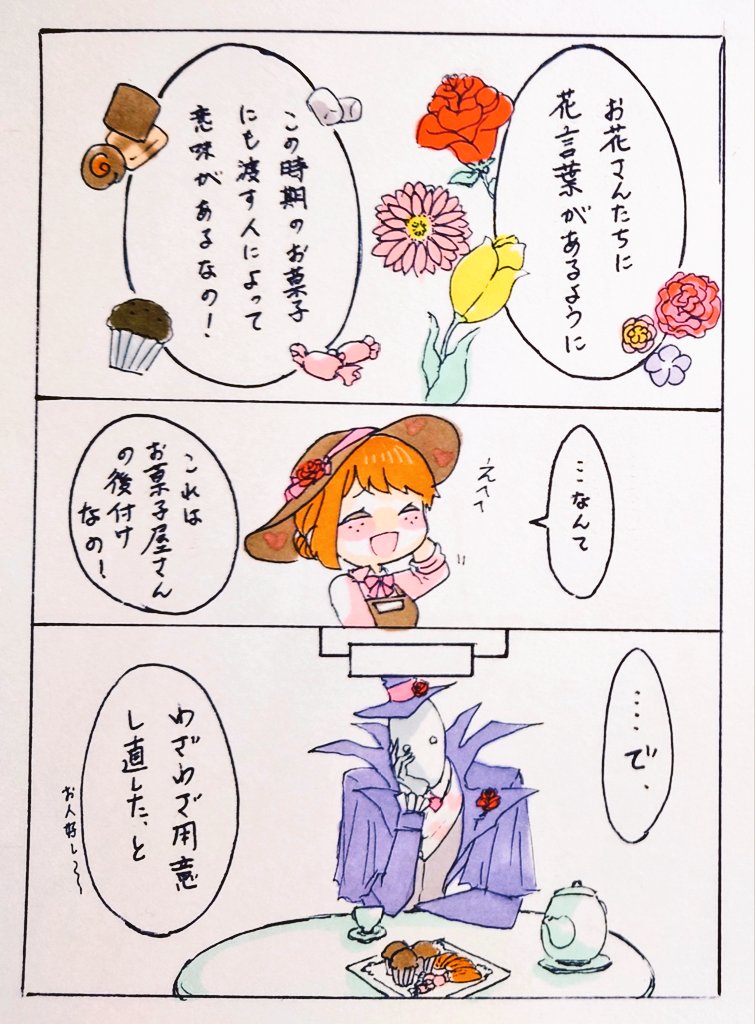 お花さんたちに
花言葉があるように
この時期のお菓子
にも渡す人によって
意味があるなの！
…なんて
えへへ
これは
お菓子屋さん
の後付け
なの！
……で、
わざわざ用意
し直した、と
お人好し〜〜